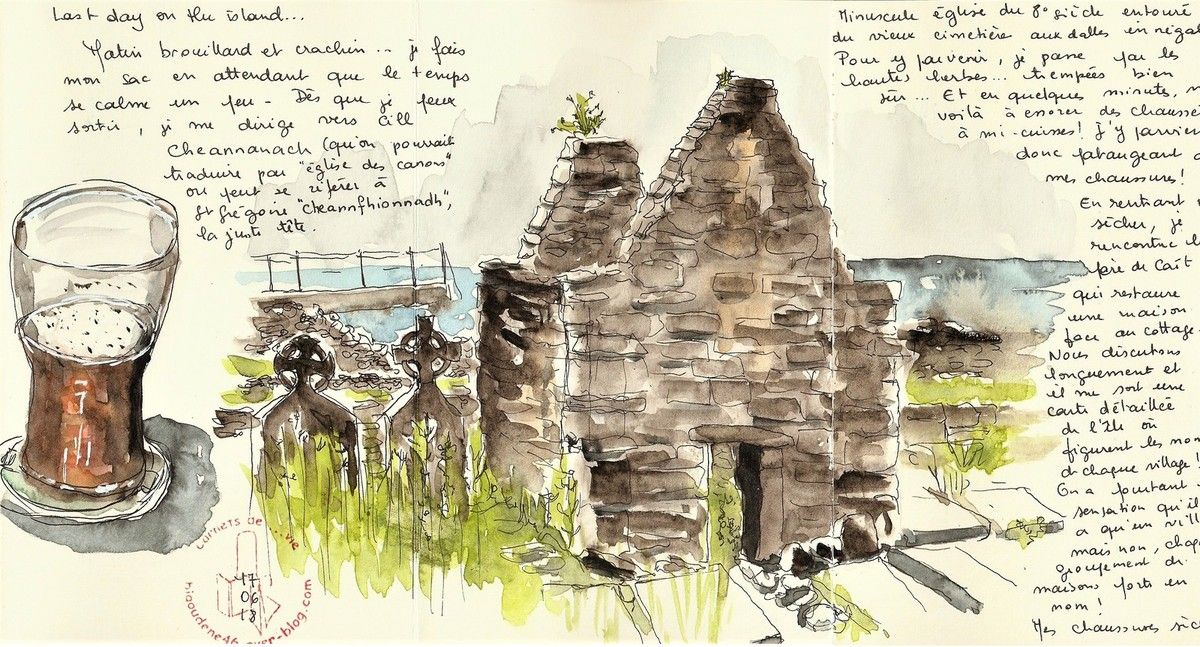 Last day on the island...
Matin brouillard et crachin... je fais
mon sac en attendant que le temps
se calme un peu - Dès que je peux
sortir, je me dirige vers Cill
Cheannanach (qu'on pourrait
traduire par "église des canons"
ou peut se référer à
St Grégoire "Cheannfhionnadh",
la juste tête.
Minuscule église du 8° siècle entouré
du vieux cimetière aux dalles en
Pour y parvenir, je passe par les
hautes herbes... trempées bien
sûr... Et en quelques minutes,
voilà à essorer des
à mi-cuisses! J'y
donc pataugeant
mes chaussures!
En rentrant
sécher, je
rencontre
père de Cait
qui restaure
une maison
face au cottage
Nous discutons
longuement et
il me sort une
carte détaillée
de l'île où
figurent les
de chaque village!
On a pourtant
sensation
a qu'un
mais non,
groupement de
maisons porte un
nom!
Mes chaussures
carnets de...vie
17
06
18